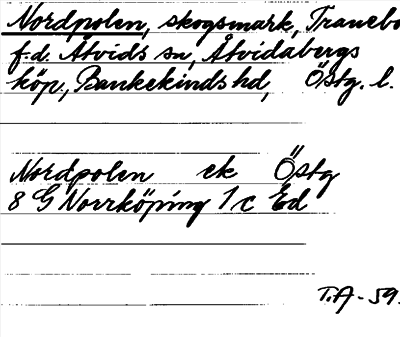 Nordpolen, skogsmark, Tranebo
f.d. Åtvids sn, Åtvidabergs
köp., Bankekinds hd, Östg. l.
Nordpolen ek Östg
8 G Norrköping 1 c Ed
T.A - 59.